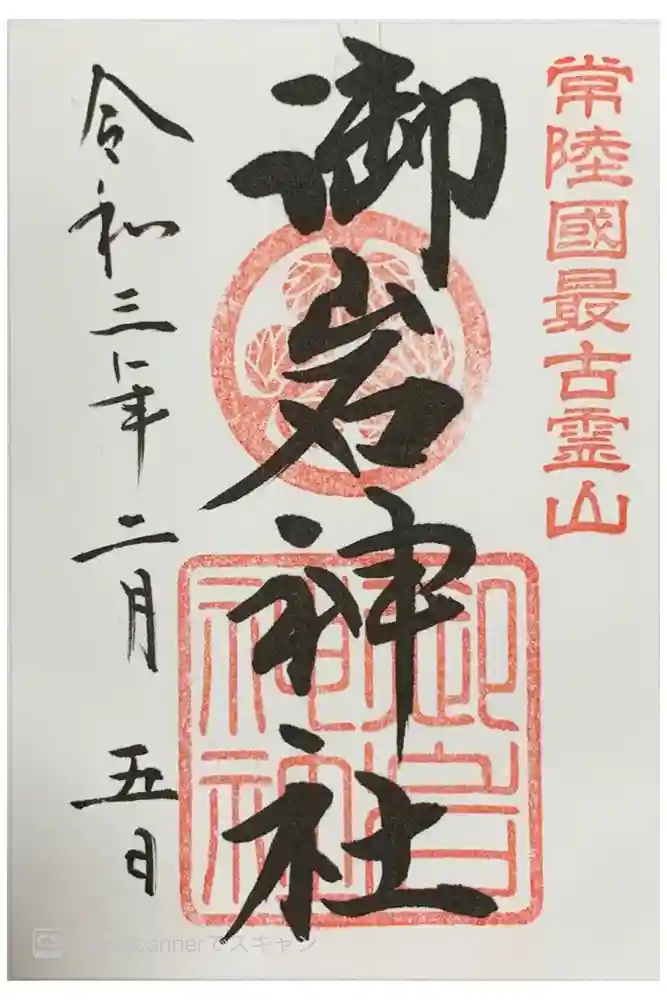 常陸國最古霊山
御岩神社
令和三年二月五日
CS
scannerでスキャン